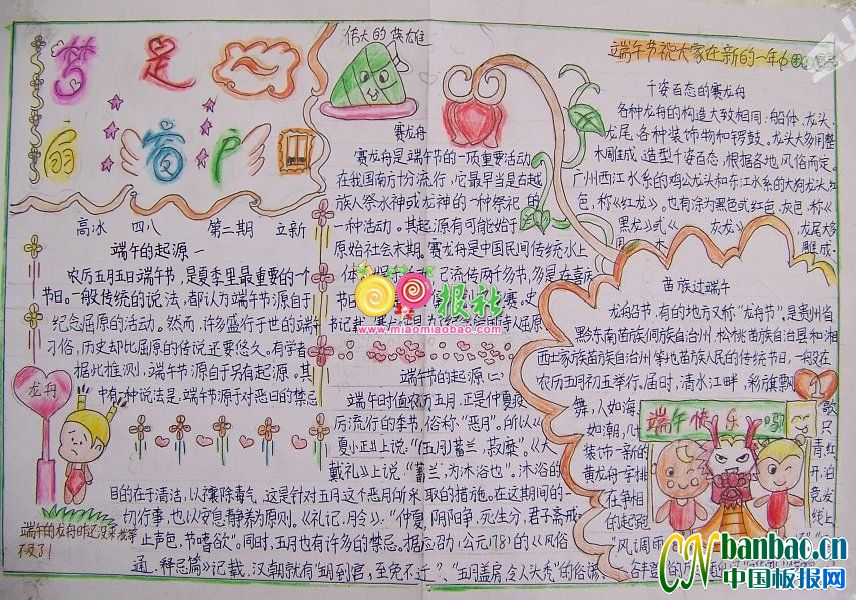 梦是
雨窗户
高冰 四八 第二期 立新
端午的起源一
农历五月五日端午节，是夏季里最重要的一个
节日。一般传统的说法，都认为端午节源自于
纪念屈原的活动。然而，许多盛行于世的端午
习俗，历史却比屈原的传说还要悠久。有学者
据此推测，端午节源自于另有起源。其
中有一种说法是，端午节源于对恶日的禁忌
龙舟
端午的龙舟咋还没来
不及了！
伟大的英雄
赛龙舟
赛龙舟是端午节的一项重要活动，
在我国南方十分流行，它最早当是古越
族人祭水神或龙神的一种祭祀 的
一种活动。其起源有可能始于
原始社会末期。赛龙舟是中国民间传统水上
己流传两千多节，多是在喜庆
根社
www.miaomiaobao.com
端午节的起源（二）
端午时值农历五月，正是仲夏疫
厉流行的季节，俗称“恶月”。所以《
夏小正》上说，“（五月）蓄兰，菽糜”。《大
戴礼》上说，“蓄兰，为沐浴也”。沐浴的
目的在于清洁，以禳除毒气，这是针对五月这个恶月所采取的措施。在这期间的一
切行事，也以安息静养为原则。《礼记，月令》：“仲夏，阴阳争，死生分，君子斋戒
止声色，节嗜欲”。同时，五月也有许多的禁忌。据应劭（公元178）的《风俗
通，释忌篇》记载，汉朝就有“五月到官，至免不迁”、“五月盖房，令人头秃”的俗谚，
端午节祝大家在新的一年
千姿百态的赛龙舟
各种龙舟的构造大致相同：船体、龙头、
龙尾、各种装饰物和锣鼓。龙头大多用整
木雕成，造型千姿百态，根据各地风俗而定。
广州西江水系的鸡公龙头和东江水系的大狗龙头红
色，称《红龙》。也有涂为黑色或红色、灰色，称《
黑龙》式《 灰龙》 龙尾多
用 木 雕成.
苗族过端午
龙船节，有的地方又称“龙舟节”，是贵州省
黔东南苗族侗族自治州、松桃苗族自治县和湘
西土家族苗族自治州等地苗族人民的传统节日，一般在
农历五月初五举行。届时，清水江畔，彩旗飘
舞，人如海 歌
如潮，几 只
装饰一新的 青、红
黄龙舟一字排 开，泊
在争相 竞发
的起跑 线上
“风调雨
端午快乐
1
CN banbao.cn
中国板报网